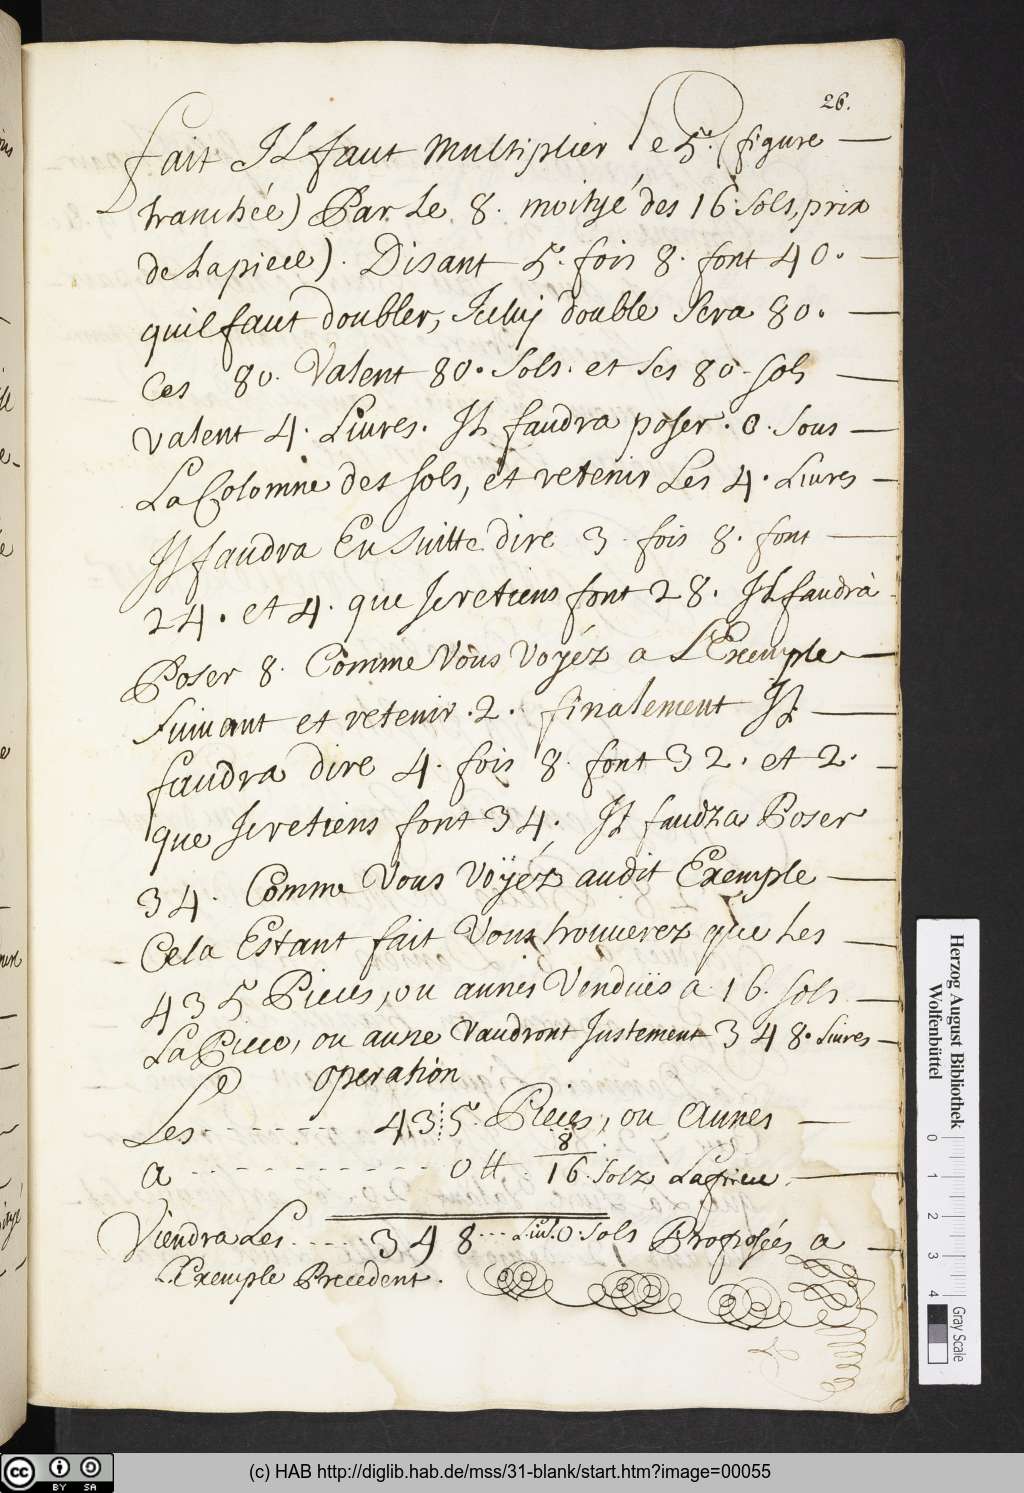 26.
fait Il faut multiplier le 5. (figure
tranchée) Par Le 8. moityé des 16 Sols, prix
de La piece). Disant 5. fois 8. font 40.
quil faut doubler, Iceluy double Sera 80.
Ces 80. Valent 80. Sols. et Ses 80. Sols
valent 4. Liures. Il faudra poser. 0. Sous
La Colomne des Sols, et retenir Les 4. Liures
Il faudra En Suitte dire 3. fois 8. font
24. et 4. que Je retiens font 28. Il faudra
Poser 8. Comme Vous Voyéz a L'Exemple
Suiuant et retenir. 2. finalement Il
faudra dire 4. fois 8. font 32. et 2.
que Je retiens font 34. Il faudra Poser
34. Comme Vous Voÿéz audit Exemple
Cela Estant fait Vous trouuerez que Les
435 Pieces, ou aunes Vendües a. 16. Sols
La Piece, ou aune Vaudront Justement 348. Liures
operation
Les 43 5. Pieces, ou Aunes
8
a 0 tt. 16. Solz La piece
Viendra Les 348 0. Sols Proposées a
L'Exemple Precedent.
Herzog August Bibliothek
Wolfenbüttel
0 1 2 3 4
Gray Scale
cc BY SA
(c) HAB http://diglib.hab.de/mss/31-blank/start.htm?image=00055